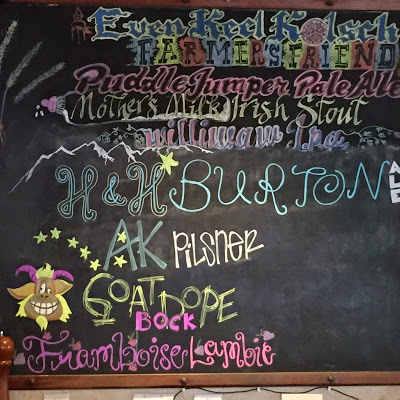 Even Keel Kolsch
FARMER'S FRIEND
Puddle Jumper Pale Ale
Mother's Milk Irish Stout
williwaw Ipa
H&H BURTON ALE
AK PILSNER
GOAT DOPE
BOCK
Framboise Lambic